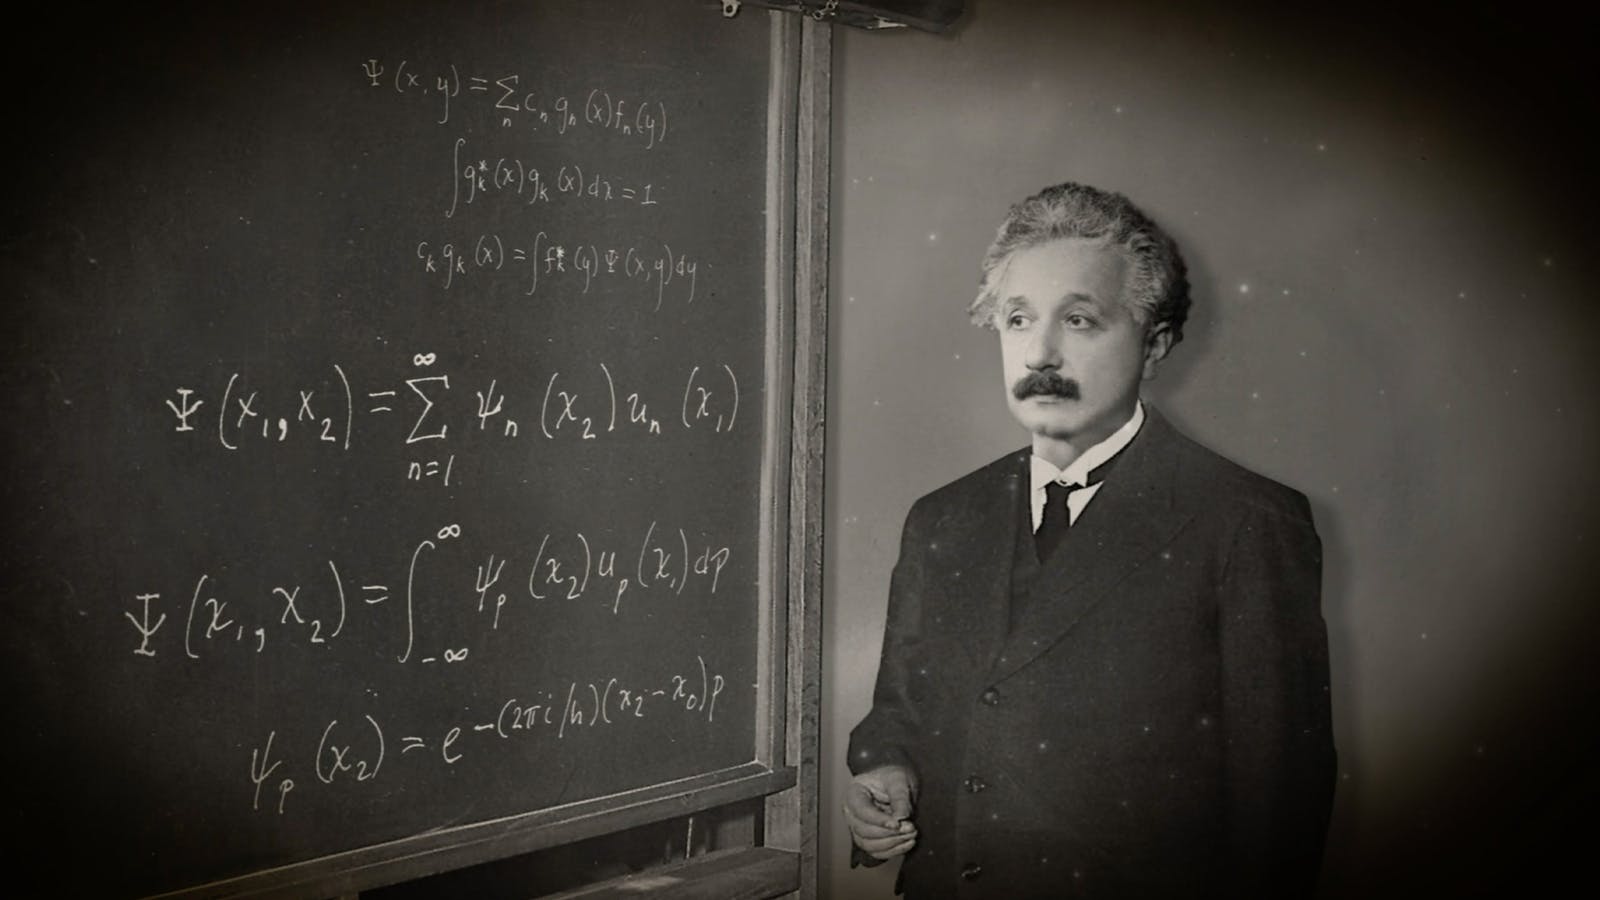 Ψ(x,y) = ∑ₙ cₙ gₙ(x) fₙ(y)
∫ gₖ*(x) gₖ(x) dx = 1
cₖ gₖ(x) = ∫ fₖ*(y) Ψ(x,y) dy
Ψ(x₁,x₂) = ∑_{n=1}^{∞} ψₙ(x₂) uₙ(x₁)
Ψ(x₁,x₂) = ∫_{-∞}^{∞} ψₚ(x₂) uₚ(x₁) dp
ψₚ(x₂) = e^{-(2πi/h)(x₂-x₀)p}